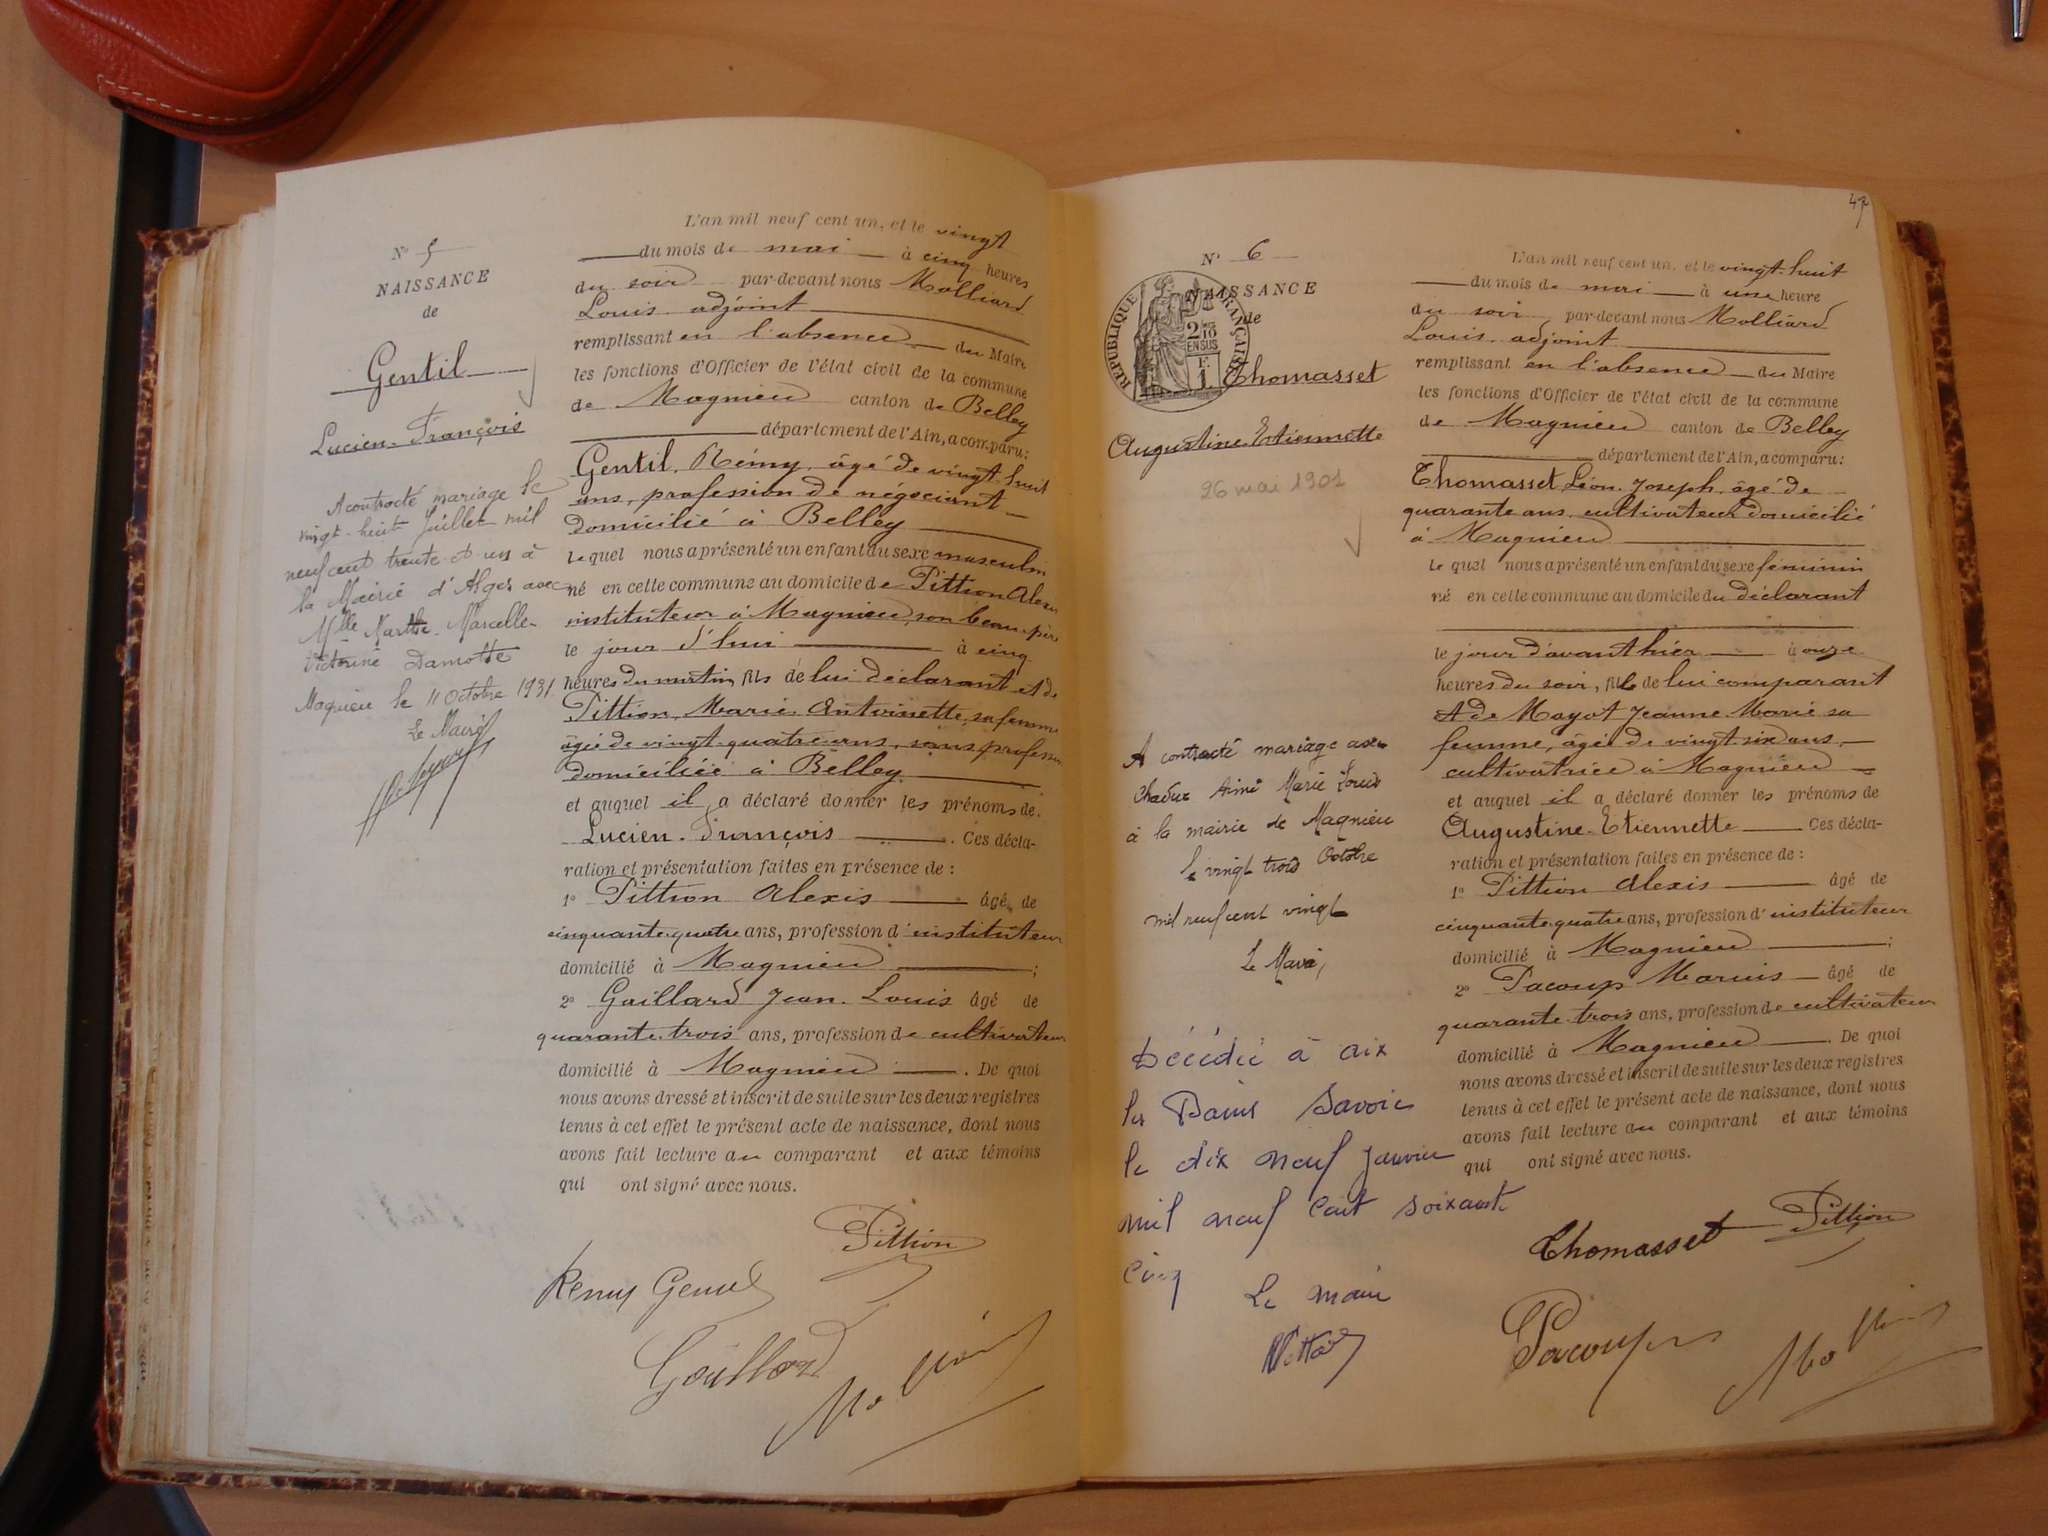 L'an mil neuf cent un, et le vingt
du mois de mai à cinq heures
du soir par-devant nous Molliard
Louis adjoint
remplissant en l'absence du Maire
les fonctions d'Officier de l'état civil de la commune
de Magnieu canton de Belley
département de l'Ain, a comparu:
Gentil Rémy, âgé de vingt-huit
ans, profession de négociant
domicilié à Belley
lequel nous a présenté un enfant du sexe masculin
né en cette commune au domicile de Pittion Alexis
instituteur à Magnieu, son beau-père
le jour d'hui à cinq
heures du matin, fils de lui déclarant et de
Pittion, Marie Antoinette, sa femme
âgée de vingt-quatre ans, sans profession
domiciliée à Belley
et auquel il a déclaré donner les prénoms de
Lucien-François. Ces décla-
ration et présentation faites en présence de :
1° Pittion Alexis âgé de
cinquante-quatre ans, profession d'instituteur
domicilié à Magnieu ;
2° Gaillard Jean-Louis âgé de
quarante-trois ans, profession de cultivateur
domicilié à Magnieu. De quoi
nous avons dressé et inscrit de suite sur les deux registres
tenus à cet effet le présent acte de naissance, dont nous
avons fait lecture au comparant et aux témoins
qui ont signé avec nous.
Pittion
Remy Gentil
Gaillard
N° 5
NAISSANCE
de
Gentil
Lucien-François
A contracté mariage le
vingt-huit Juillet mil
neuf cent trente et un à
la Mairie d'Alger avec
Mlle Marthe Marcelle
Victorine Damotte
Magnieu le 11 Octobre 1931
Le Maire
47
N° 6
NAISSANCE
de
RÉPUBLIQUE FRANÇAISE
2/10 EN SUS
F. 1.
Thomasset
Augustine-Etiennette
26 mai 1901
A contracté mariage avec
Chaduc Aimé Marie Louis
à la mairie de Magnieu
le vingt trois Octobre
mil neuf cent vingt
Le Maire,
Décédée à Aix
les Bains Savoie
le dix neuf Janvier
mil neuf cent soixante
cinq
Le maire
L'an mil neuf cent un, et le vingt-huit
du mois de mai à une heure
du soir par-devant nous Molliard
Louis adjoint
remplissant en l'absence du Maire
les fonctions d'Officier de l'état civil de la commune
de Magnieu canton de Belley
département de l'Ain, a comparu:
Thomasset Léon Joseph, âgé de
quarante ans, cultivateur domicilié
à Magnieu
lequel nous a présenté un enfant du sexe féminin
né en cette commune au domicile du déclarant
le jour d'avant hier à onze
heures du soir, fille de lui comparant
et de Mayot Jeanne-Marie sa
femme, âgée de vingt-six ans,
cultivatrice à Magnieu
et auquel il a déclaré donner les prénoms de
Augustine-Etiennette Ces décla-
ration et présentation faites en présence de :
1° Pittion Alexis âgé de
cinquante-quatre ans, profession d'instituteur
domicilié à Magnieu ;
2° Pacoup Marius âgé de
quarante-trois ans, profession de cultivateur
domicilié à Magnieu. De quoi
nous avons dressé et inscrit de suite sur les deux registres
tenus à cet effet le présent acte de naissance, dont nous
avons fait lecture au comparant et aux témoins
qui ont signé avec nous.
Thomasset Pittion